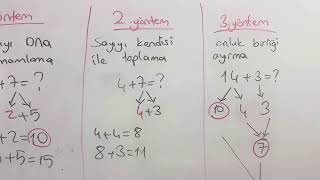 yöntem
DNA
+7=?
2+5
+2=10
+5=15
2. yöntem
Sayıyı kendisi
ile toplama
4+7=?
4+3
4+4=8
8+3=11
3. yöntem
onluk birliği
ayırma
14+3=?
10 4 3
7